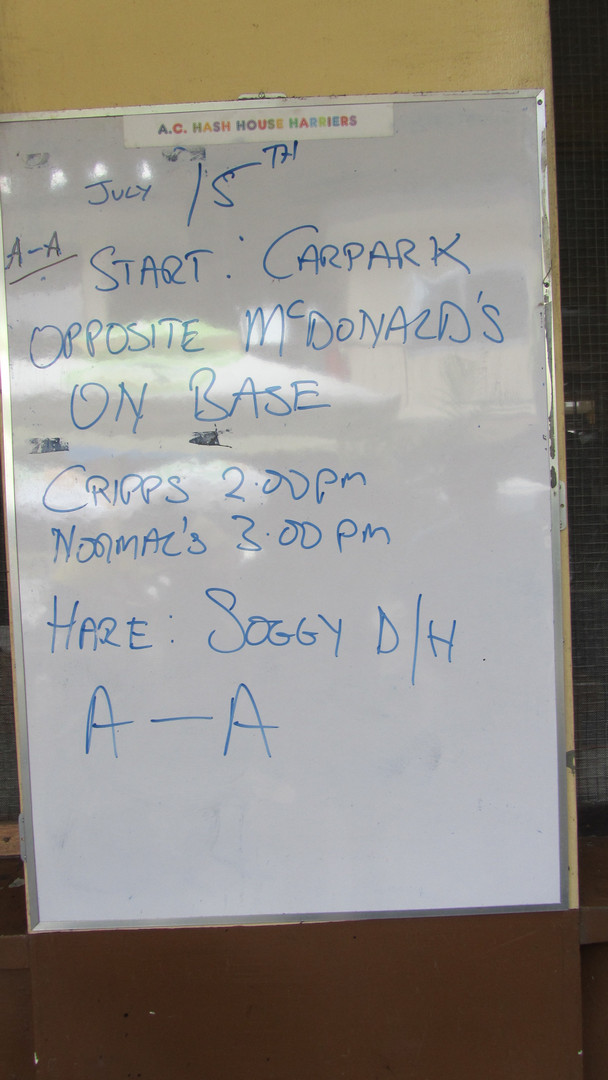 A.C. HASH HOUSE HARRIERS
JULY 15TH
A-A
START: CARPARK
OPPOSITE McDONALD'S
ON BASE
CRIPPS 2.00pm
NORMAL'S 3.00 pm
HARE: SOGGY D/H
A-A